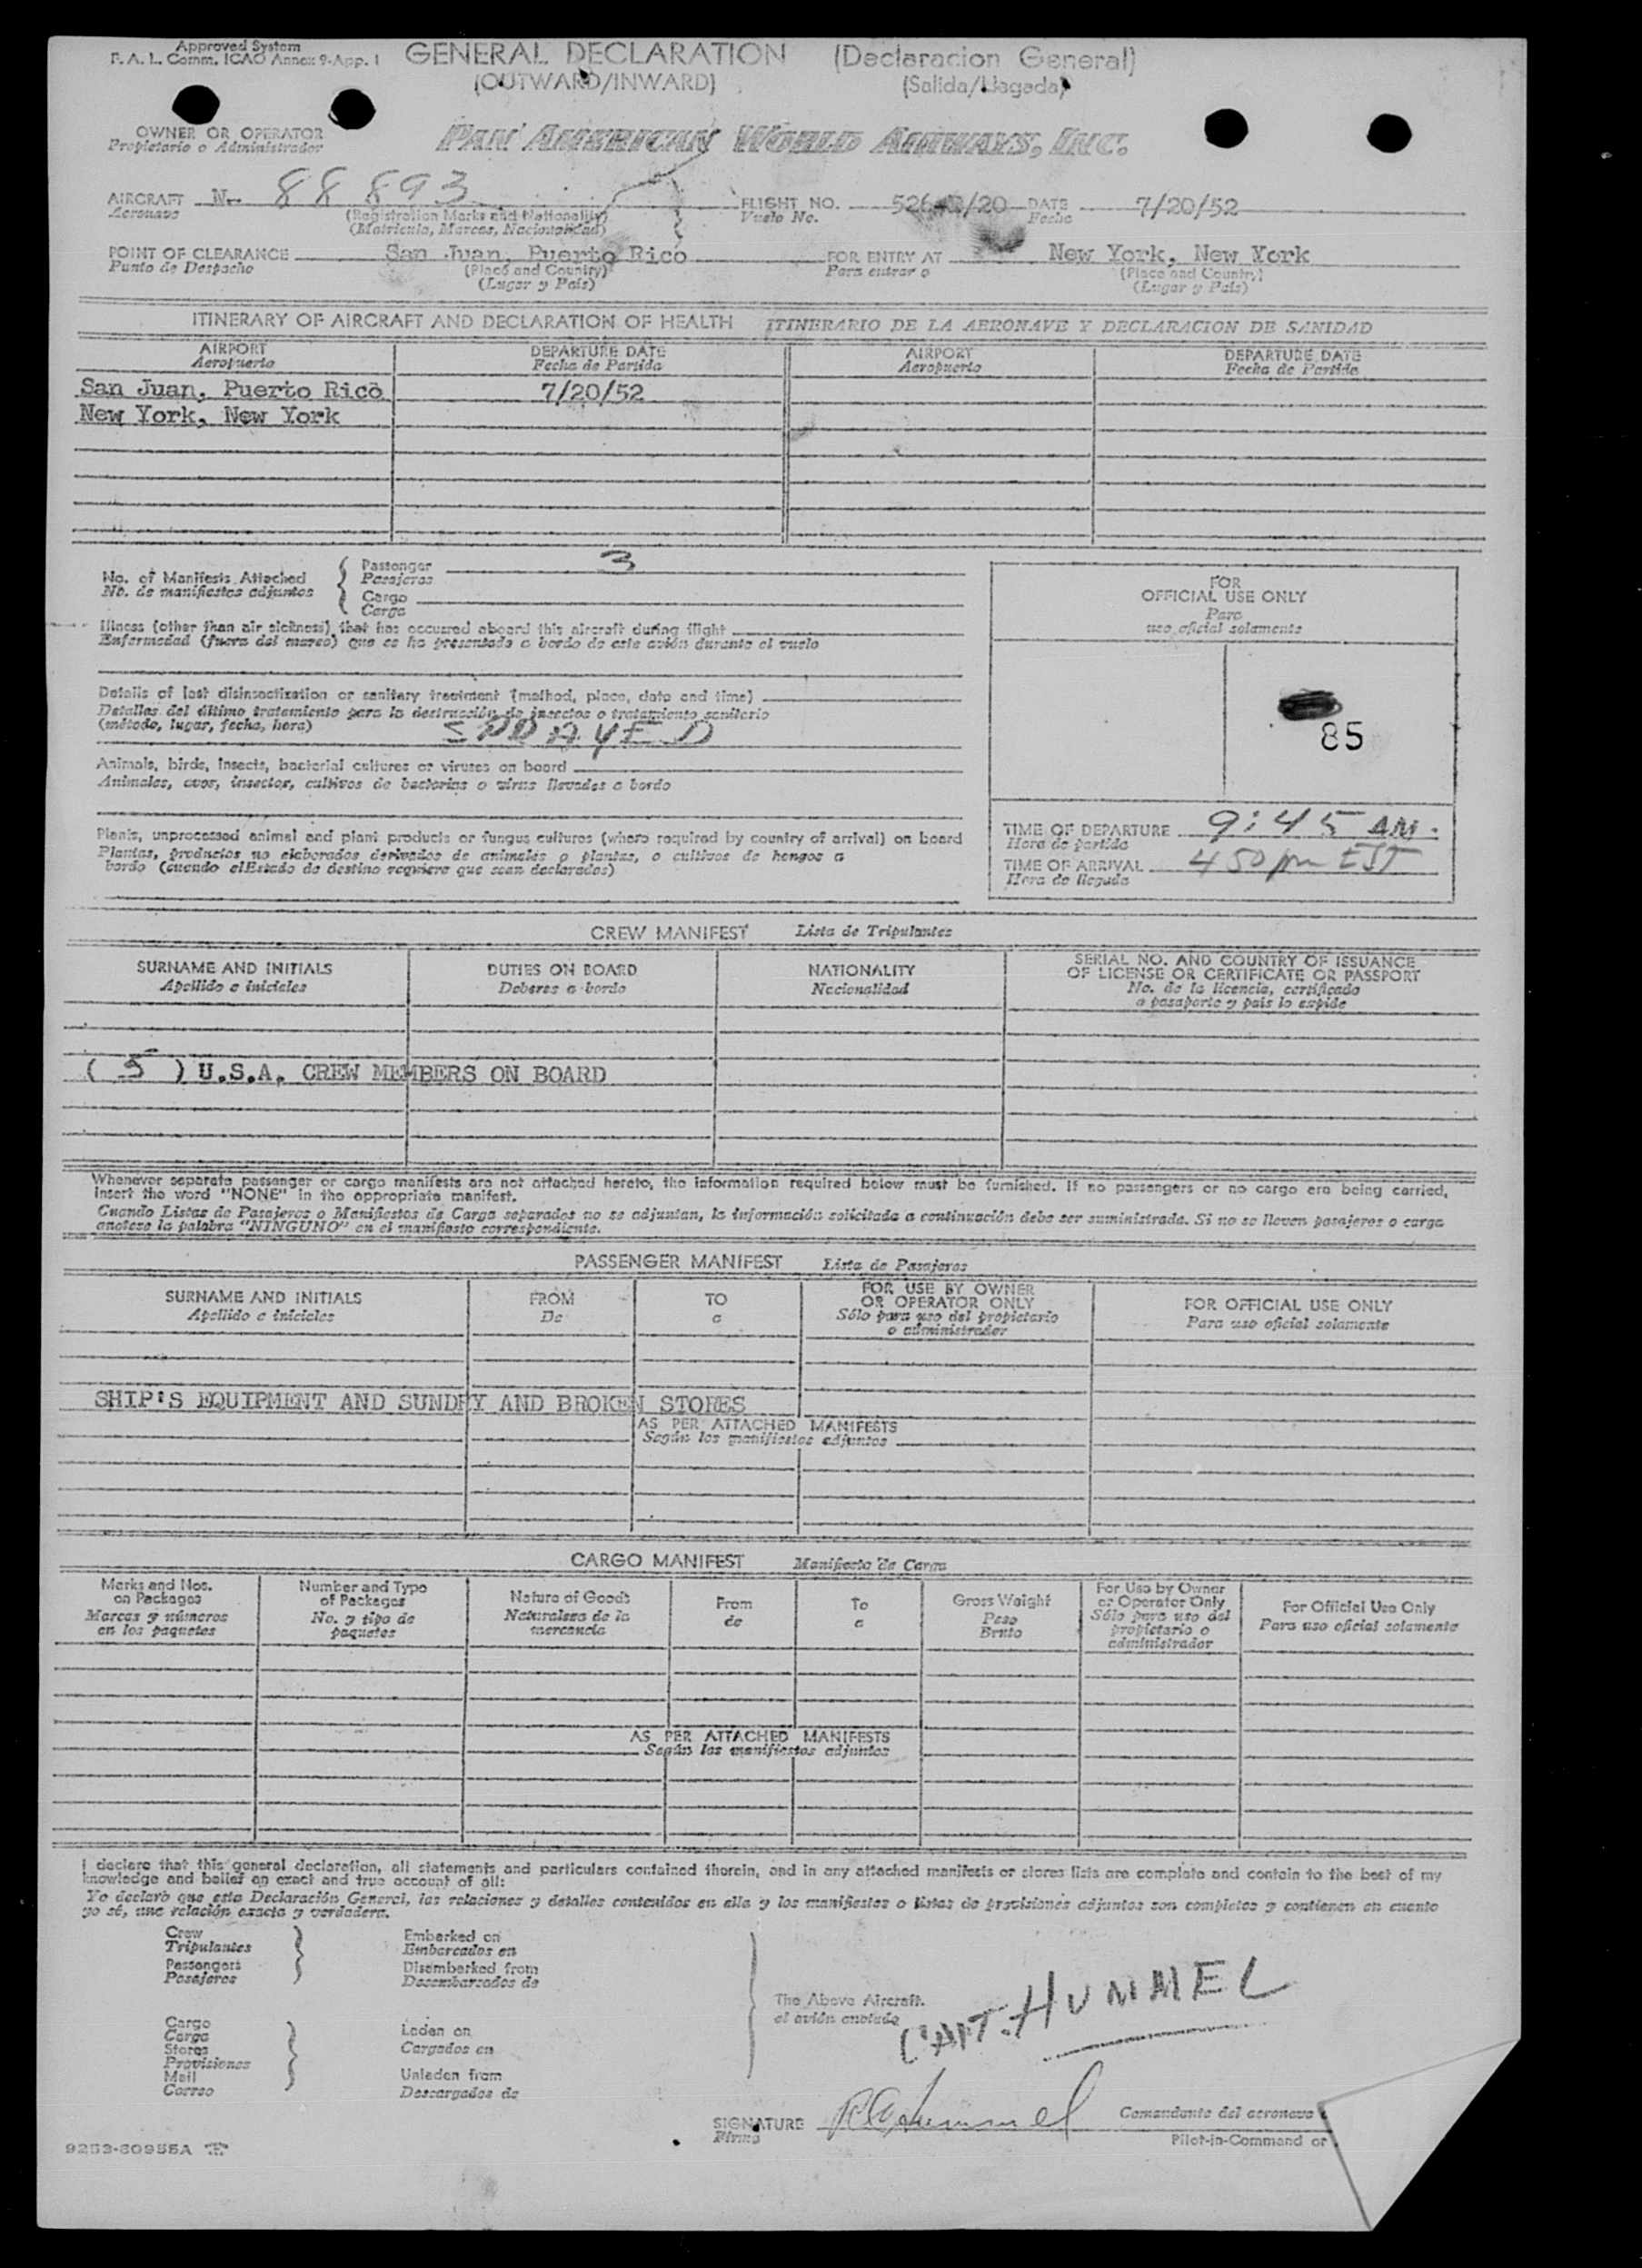 Approved System
F. A. L. Comm. ICAO Annex 9-App. 1
GENERAL DECLARATION (Declaracion General)
(OUTWARD/INWARD) (Salida/Llegada)
OWNER OR OPERATOR
Propietario o Administrador
PAN AMERICAN WORLD AIRWAYS, INC.
AIRCRAFT N- 88893 FLIGHT NO. 526 /20 DATE 7/20/52
Aeronave Vuelo No. Fecha
(Registration Marks and Nationality)
(Matricula, Marcas, Nacionalidad)
POINT OF CLEARANCE San Juan, Puerto Rico FOR ENTRY AT New York, New York
Punto de Despacho (Place and Country) Para entrar a (Place and Country)
(Lugar y Pais) (Lugar y Pais)
ITINERARY OF AIRCRAFT AND DECLARATION OF HEALTH ITINERARIO DE LA AERONAVE Y DECLARACION DE SANIDAD
AIRPORT DEPARTURE DATE AIRPORT DEPARTURE DATE
Aeropuerto Fecha de Partida Aeropuerto Fecha de Partida
San Juan, Puerto Rico 7/20/52
New York, New York
No. of Manifests Attached
No. de manifiestos adjuntos
Passenger 3
Pasajeros
Cargo
Carga
Illness (other than air sickness) that has occurred aboard this aircraft during flight
Enfermedad (fuera del mareo) que se ha presentado a bordo de este avión durante el vuelo
Details of last disinsectization or sanitary treatment (method, place, date and time)
Detalles del último tratamiento para la destrucción de insectos o tratamiento sanitario
(método, lugar, fecha, hora) SPRAYED
Animals, birds, insects, bacterial cultures or viruses on board
Animales, aves, insectos, cultivos de bacterias o virus llevados a bordo
Plants, unprocessed animal and plant products or fungus cultures (where required by country of arrival) on board
Plantas, productos no elaborados derivados de animales o plantas, o cultivos de hongos a
bordo (cuando el Estado de destino requiere que sean declarados)
FOR
OFFICIAL USE ONLY
Para
uso oficial solamente
85
TIME OF DEPARTURE 9:45 AM.
Hora de partida
TIME OF ARRIVAL 4 50 pm EST
Hora de llegada
CREW MANIFEST Lista de Tripulantes
SURNAME AND INITIALS DUTIES ON BOARD NATIONALITY SERIAL NO. AND COUNTRY OF ISSUANCE
OF LICENSE OR CERTIFICATE OR PASSPORT
Apellido e iniciales Deberes a bordo Nacionalidad No. de la licencia, certificado
o pasaporte y pais lo expide
( 5 ) U.S.A. CREW MEMBERS ON BOARD
Whenever separate passenger or cargo manifests are not attached hereto, the information required below must be furnished. If no passengers or no cargo are being carried,
insert the word "NONE" in the appropriate manifest.
Cuando Listas de Pasajeros o Manifiestos de Carga separados no se adjuntan, la información solicitada a continuación debe ser suministrada. Si no se lleven pasajeros o carga
anotese la palabra "NINGUNO" en el manifiesto correspondiente.
PASSENGER MANIFEST Lista de Pasajeros
SURNAME AND INITIALS FROM TO FOR USE BY OWNER
OR OPERATOR ONLY FOR OFFICIAL USE ONLY
Apellido e iniciales De a Sólo para uso del propietario
o administrador Para uso oficial solamente
SHIP'S EQUIPMENT AND SUNDRY AND BROKEN STORES
AS PER ATTACHED MANIFESTS
Según los manifiestos adjuntos
CARGO MANIFEST Manifiesto de Carga
Marks and Nos.
on Packages
Marcas y números
en los paquetes
Number and Type
of Packages
No. y tipo de
paquetes
Nature of Goods
Naturaleza de la
mercancia
From
de
To
a
Gross Weight
Peso
Bruto
For Use by Owner
or Operator Only
Sólo para uso del
propietario o
administrador
For Official Use Only
Para uso oficial solamente
AS PER ATTACHED MANIFESTS
Según los manifiestos adjuntos
I declare that this general declaration, all statements and particulars contained therein, and in any attached manifests or stores lists are complete and contain to the best of my
knowledge and belief an exact and true account of all:
Yo declaro que esta Declaración General, las relaciones y detalles contenidos en ella y los manifiestos o listas de provisiones adjuntos son completos y contienen en cuanto
yo sé, una relación exacta y verdadera.
Crew
Tripulantes
Passengers
Pasajeros
Embarked on
Embarcados en
Disembarked from
Desembarcados de
Cargo
Carga
Stores
Provisiones
Mail
Correo
Laden on
Cargados en
Unladen from
Descargados de
The Above Aircraft.
el avión anotado
CAPT. HUMMEL
SIGNATURE Comandante del aeronave
Firma Pilot-in-Command or
9253-60955A